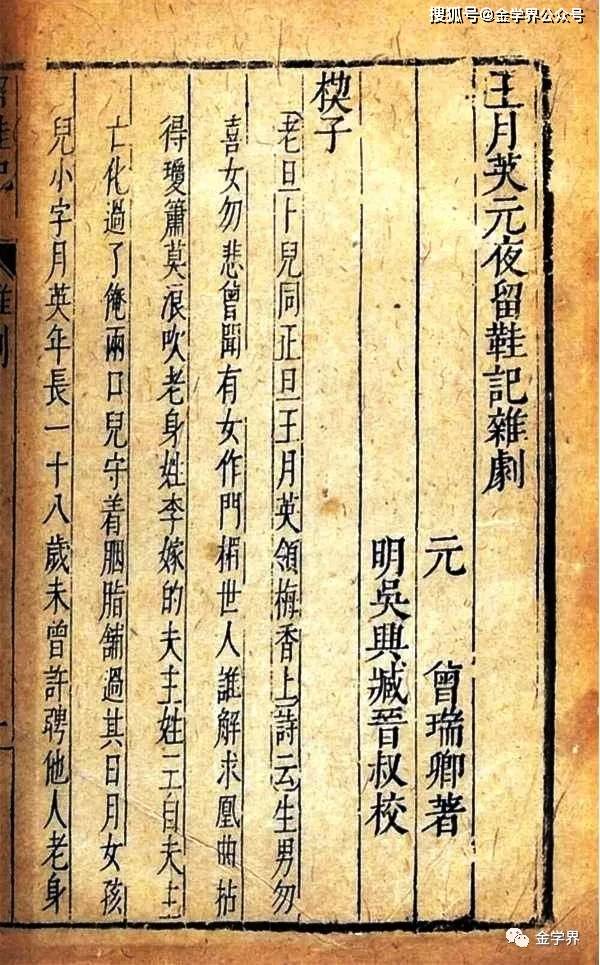 搜狐号@金学界公众号
王月英元夜留鞋記雜劇
元 曾瑞卿著
明吳興臧晉叔校
楔子
老旦卜兒同正旦王月英領梅香上詩云生男勿
喜女勿悲曾聞有女作門楣世人誰解求凰曲拈
得瓊簫莫浪吹老身姓李嫁的夫主姓王自夫主
亡化過了俺兩口兒守着胭脂舖過其日月女孩
兒小字月英年長一十八歲未曾許聘他人老身
金学界